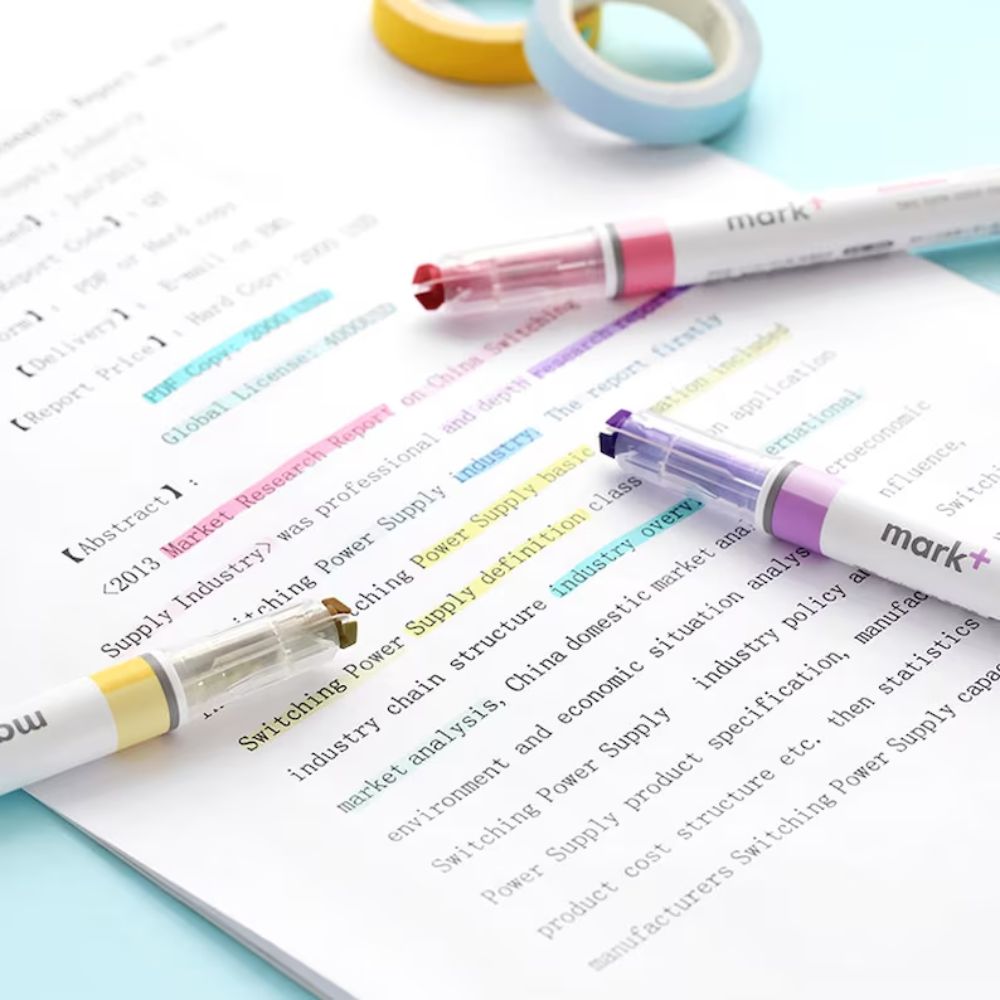 Research Report on China
Supply Industry
Jun/2013
Report Code】: QY
PDF or Hard copy
【Delivery】: E-mail or EMS
【Report Price】: Hard Copy: 2000 USD
PDF Copy: 2000 USD
Global License: 4000USD
【Abstract】:
<2013 Market Research Report on China Switching
Supply Industry> was professional and depth research report
Power Supply industry. The report firstly
Power Supply basic ation included
Switching Power Supply definition class n application
industry chain structure industry overv ernational
market analysis, China domestic market anal croeconomic
environment and economic situation analys nfluence,
Switching Power Supply industry policy Switch
Power Supply product specification, manufac
product cost structure etc. then statistics
manufacturers Switching Power Supply capac
mark+
mark+
ma